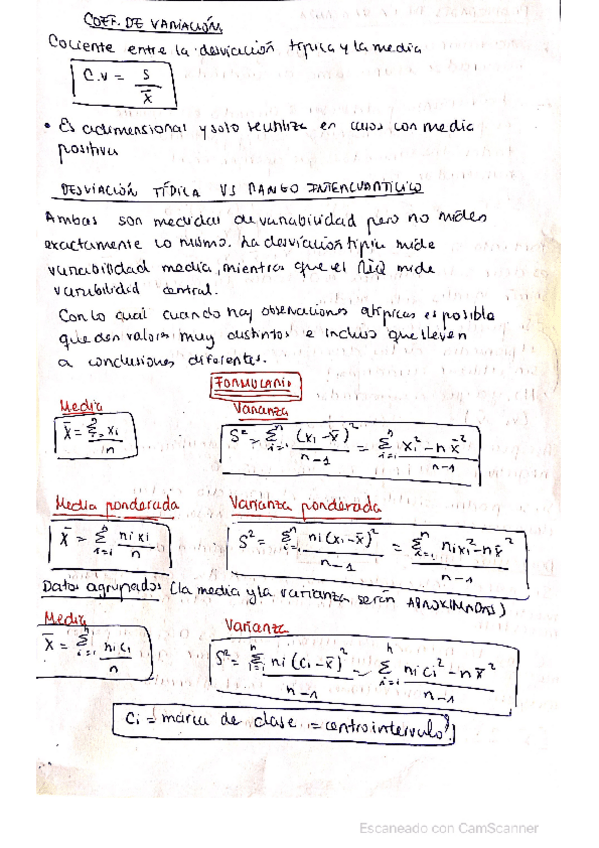 COEF. DE VARIACIÓN
Cociente entre la desviación típica y la media
C.V = S / x̄
• Es adimensional y solo se utiliza en casos con media
positiva
DESVIACIÓN TÍPICA VS RANGO INTERCUARTÍLICO
Ambas son medidas de variabilidad pero no miden
exactamente lo mismo. La desviación típica mide
variabilidad media, mientras que el RIQ mide
variabilidad central.
Con lo cual cuando hay observaciones atípicas es posible
que den valores muy distintos e incluso que lleven
a conclusiones diferentes.
FORMULARIO
Media Varianza
x̄ = Σⁿᵢ₌ xᵢ / n S² = Σⁿᵢ₌ᵢ (xᵢ - x̄)² / n-1 = Σⁿᵢ₌ᵢ xᵢ² - n x̄² / n-1
Media ponderada Varianza ponderada
x̄ = Σⁿᵢ₌ᵢ nᵢ xᵢ / n S² = Σⁿᵢ₌ᵢ nᵢ (xᵢ - x̄)² / n-1 = Σⁿᵢ₌ᵢ nᵢ xᵢ² - n x̄² / n-1
Datos agrupados (la media y la varianza serán APROXIMADAS)
Media Varianza
x̄ = Σⁿᵢ₌ᵢ nᵢ cᵢ / n S² = Σⁿᵢ₌ᵢ nᵢ (cᵢ - x̄)² / n-1 = Σⁿᵢ₌ᵢ nᵢ cᵢ² - n x̄² / n-1
Ci = marca de clase = centro intervalo
Escaneado con CamScanner